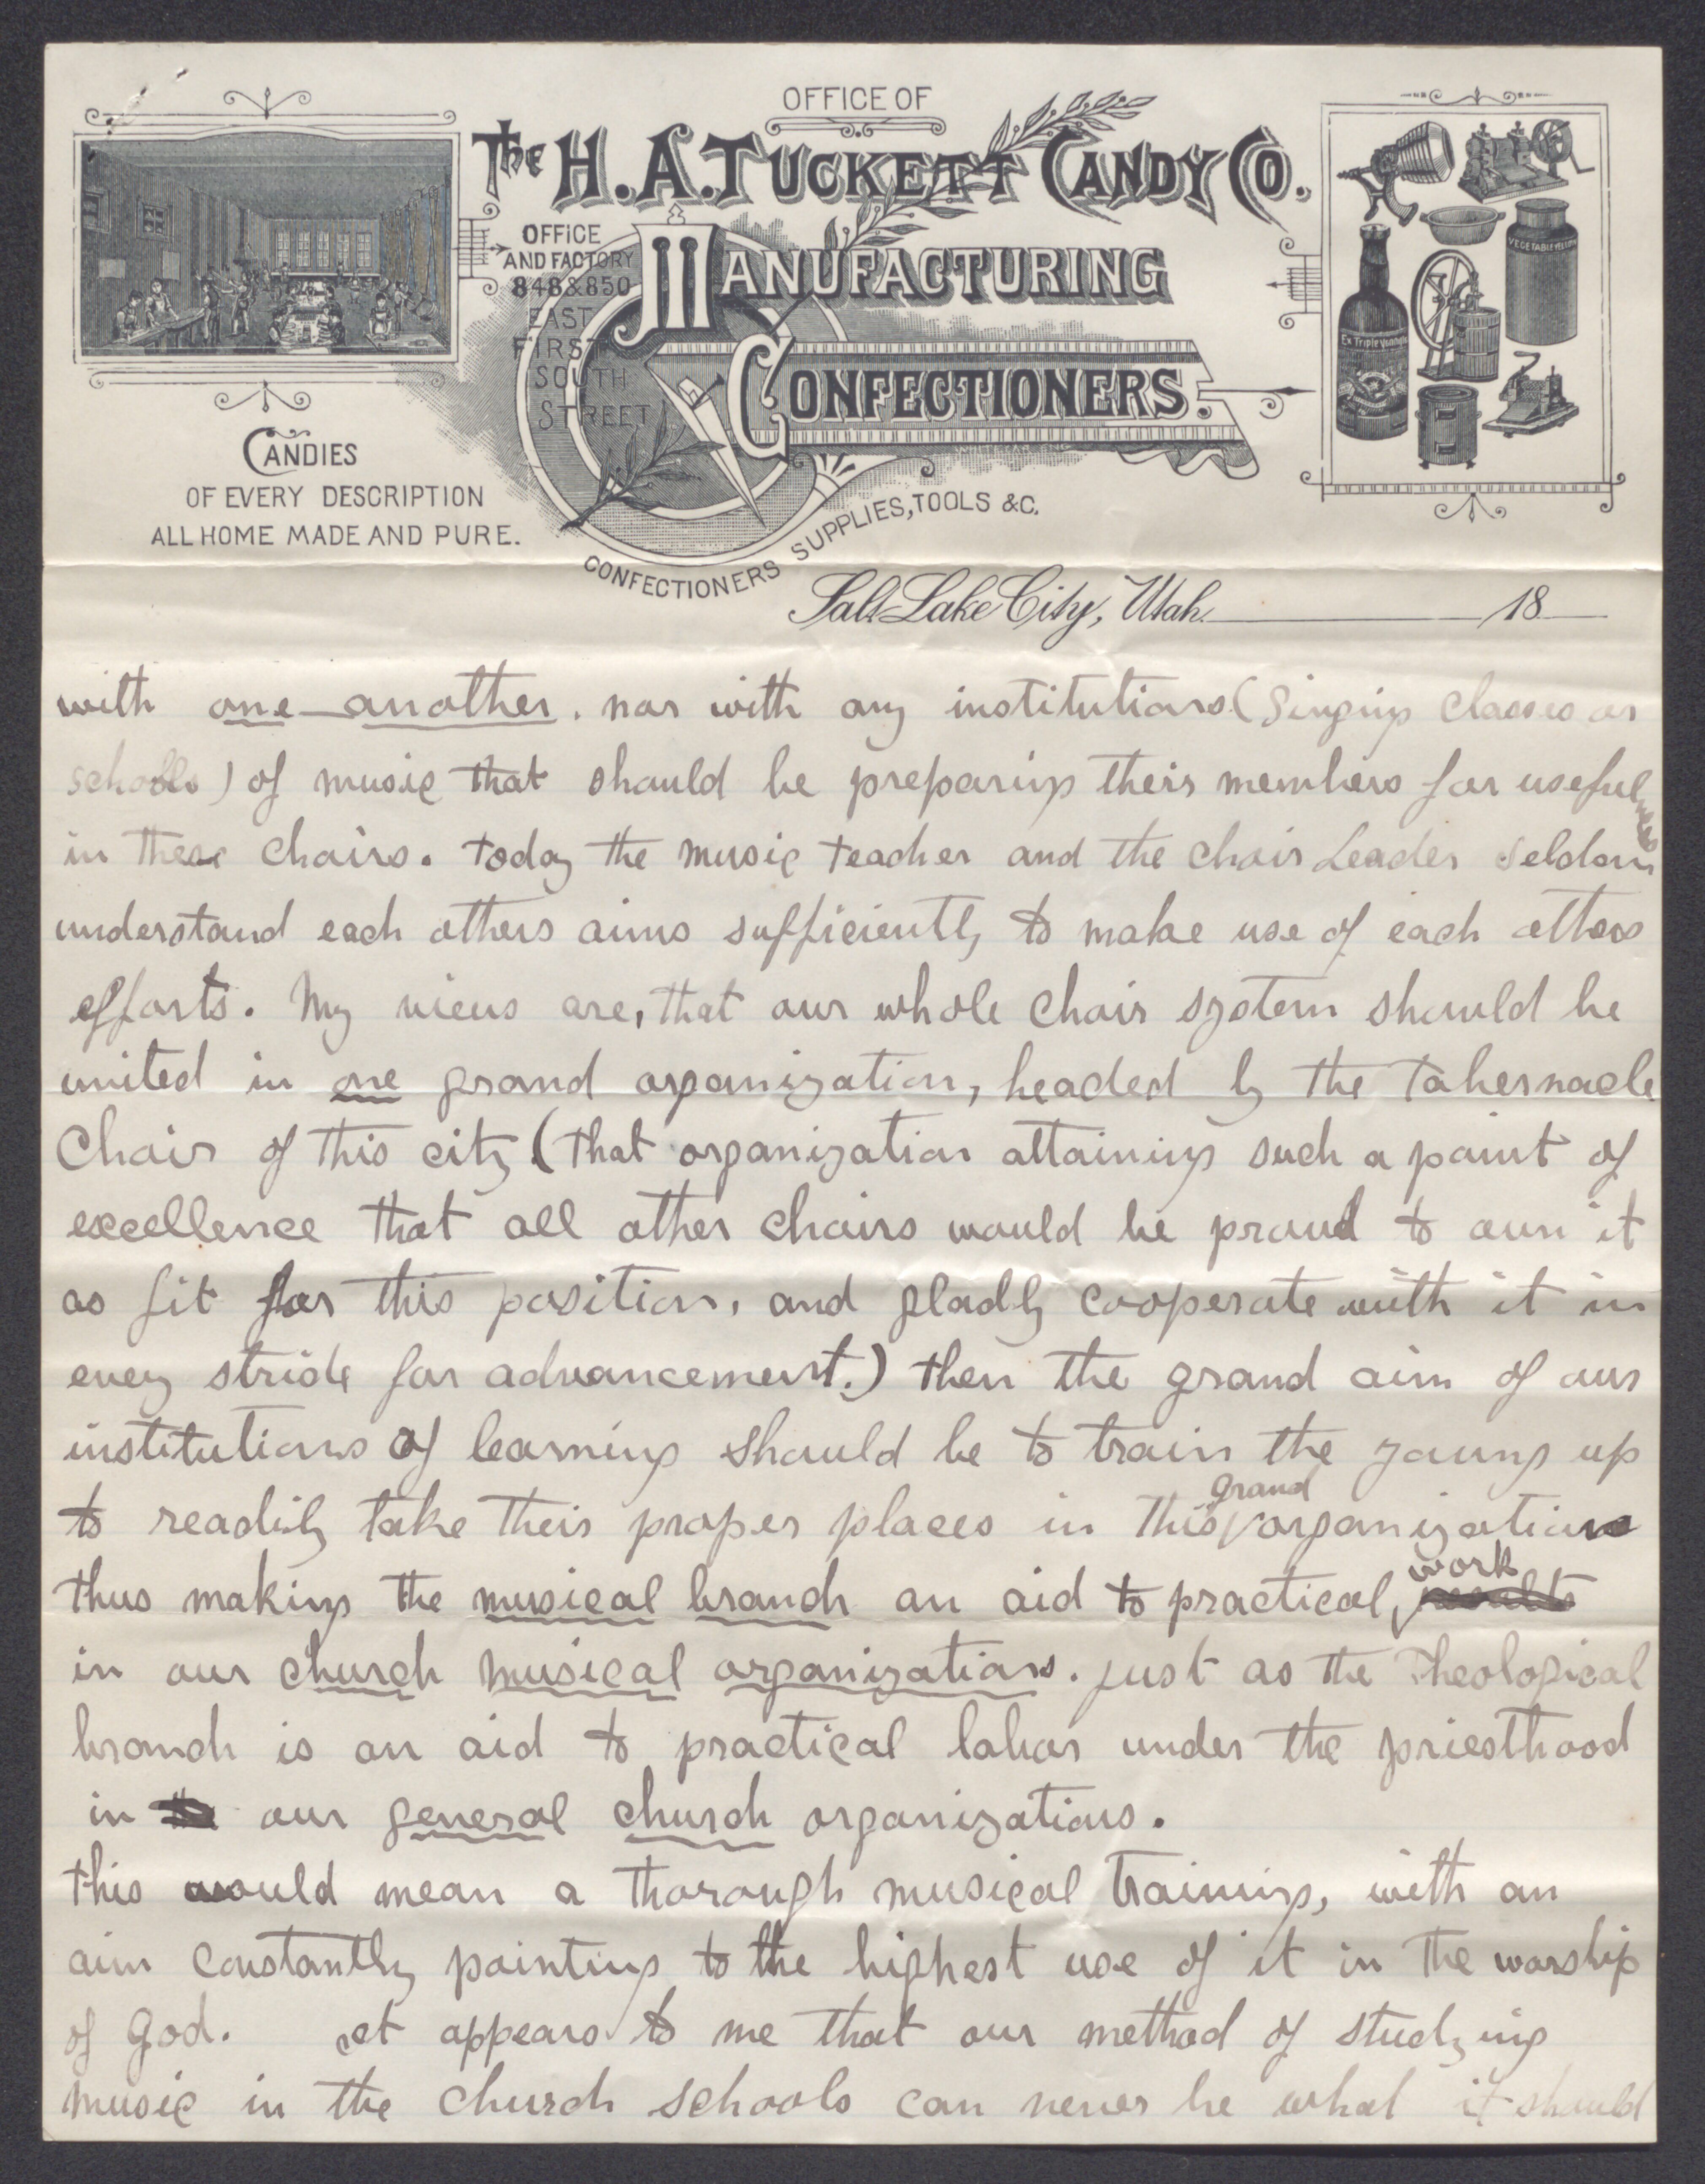 OFFICE OF
THE H. A. TUCKETT CANDY CO.
MANUFACTURING
CONFECTIONERS.
OFFICE
AND FACTORY
848 & 850
EAST
FIRST
SOUTH
STREET
CANDIES
OF EVERY DESCRIPTION
ALL HOME MADE AND PURE.
CONFECTIONERS SUPPLIES, TOOLS &C.
VEGETABLE
Ex Triple Vanilla
Salt Lake City, Utah. 18
with one another. nor with any institutions (Singing Classes or
schools) of music that should be preparing their members for usefulness
in these choirs. today the music teacher and the choir Leader seldom
understand each others aims sufficiently to make use of each others
efforts. My views are, that our whole choir system should be
united in one grand organization, headed by the Tabernacle
Choir of this city (that organization attaining such a point of
excellence that all other choirs would be proud to own it
as fit for this position, and gladly cooperate with it in
every stride for advancement.) then the grand aim of our
institutions of learning should be to train the young up
to readily take their proper places in this grand organization
thus making the musical branch an aid to practical, work results
in our church musical organizations. just as the Theological
branch is an aid to practical labor under the priesthood
in our general church organizations.
this would mean a thorough musical training, with an
aim constantly pointing to the highest use of it in the worship
of God. et appears to me that our method of studying
music in the church schools can never be what it should